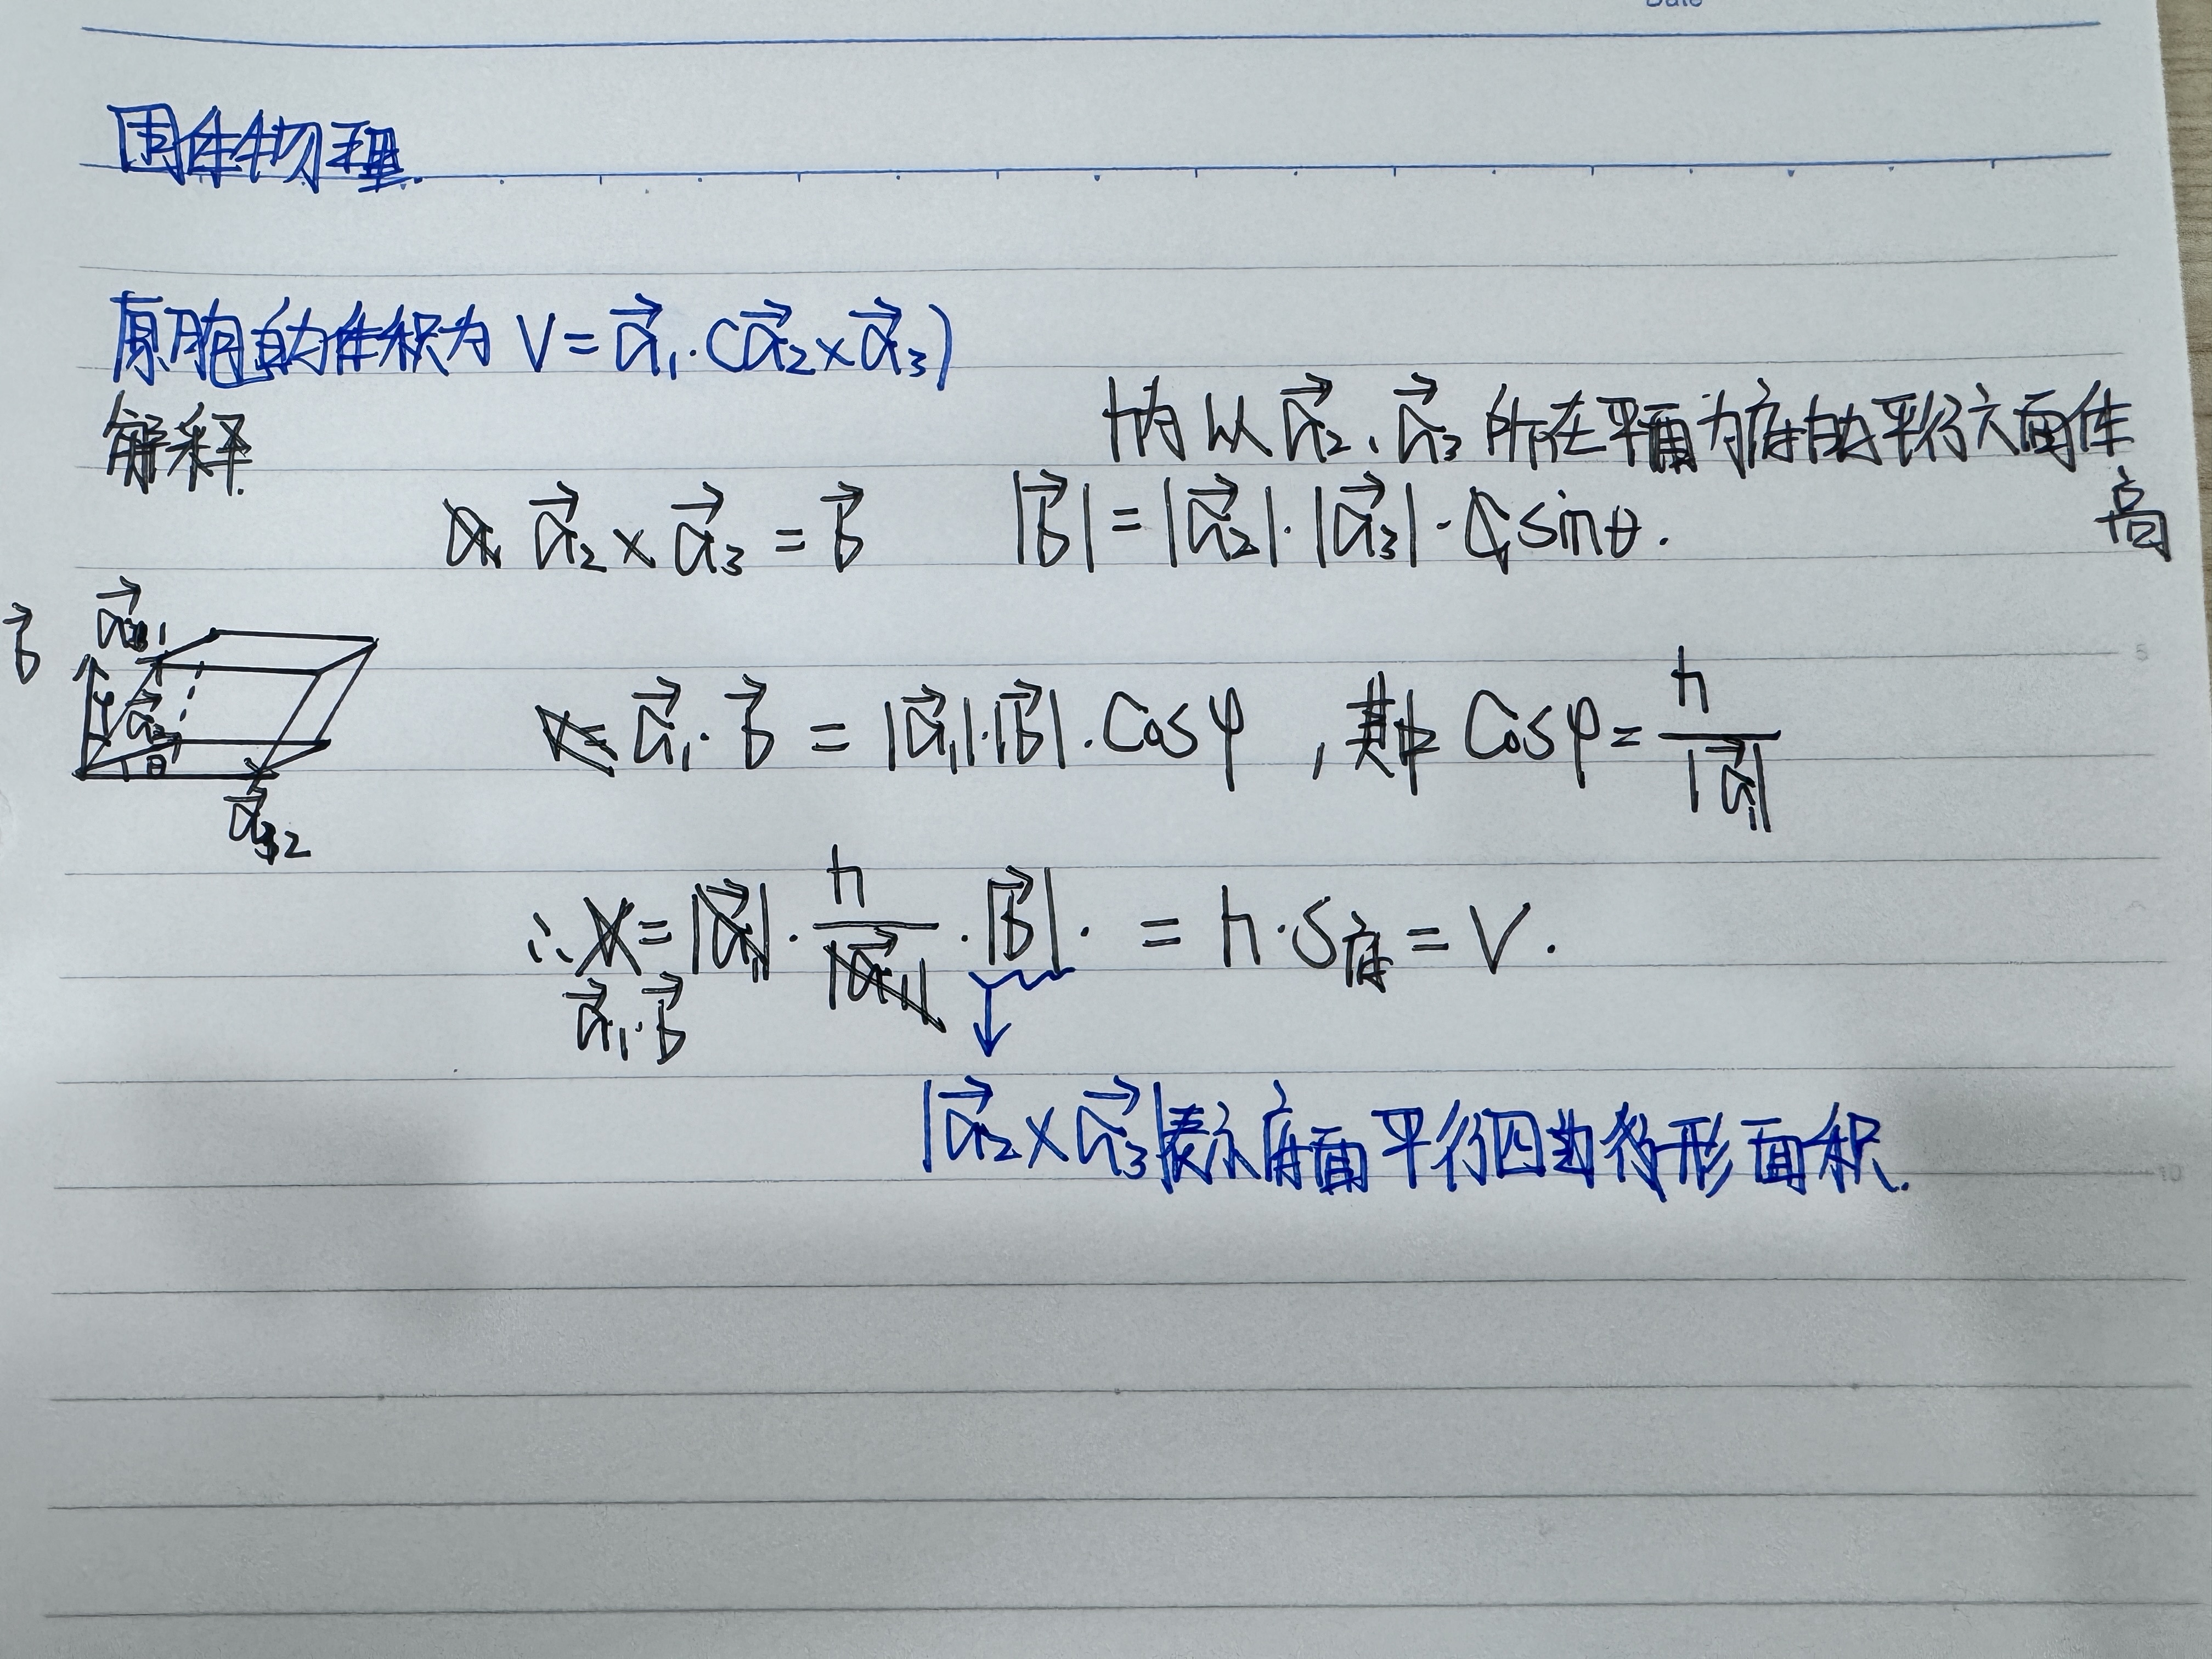 Date
固体物理.
原胞的体积为 V = a⃗₁·(a⃗₂×a⃗₃)
解释
h为以 a⃗₂、a⃗₃ 所在平面为底的平行六面体高
a⃗₂×a⃗₃ = b⃗ |b⃗| = |a⃗₂|·|a⃗₃|·sinθ.
b⃗ a⃗₁
φ a⃗₃
θ
a⃗₂
a⃗₁·b⃗ = |a⃗₁|·|b⃗|·cosφ , 其中 cosφ = h/|a⃗₁|
5
∴ a⃗₁·b⃗ = |a⃗₁|·h/|a⃗₁|·|b⃗|· = h·S底 = V.
|a⃗₂×a⃗₃|表示底面平行四边形面积.
10